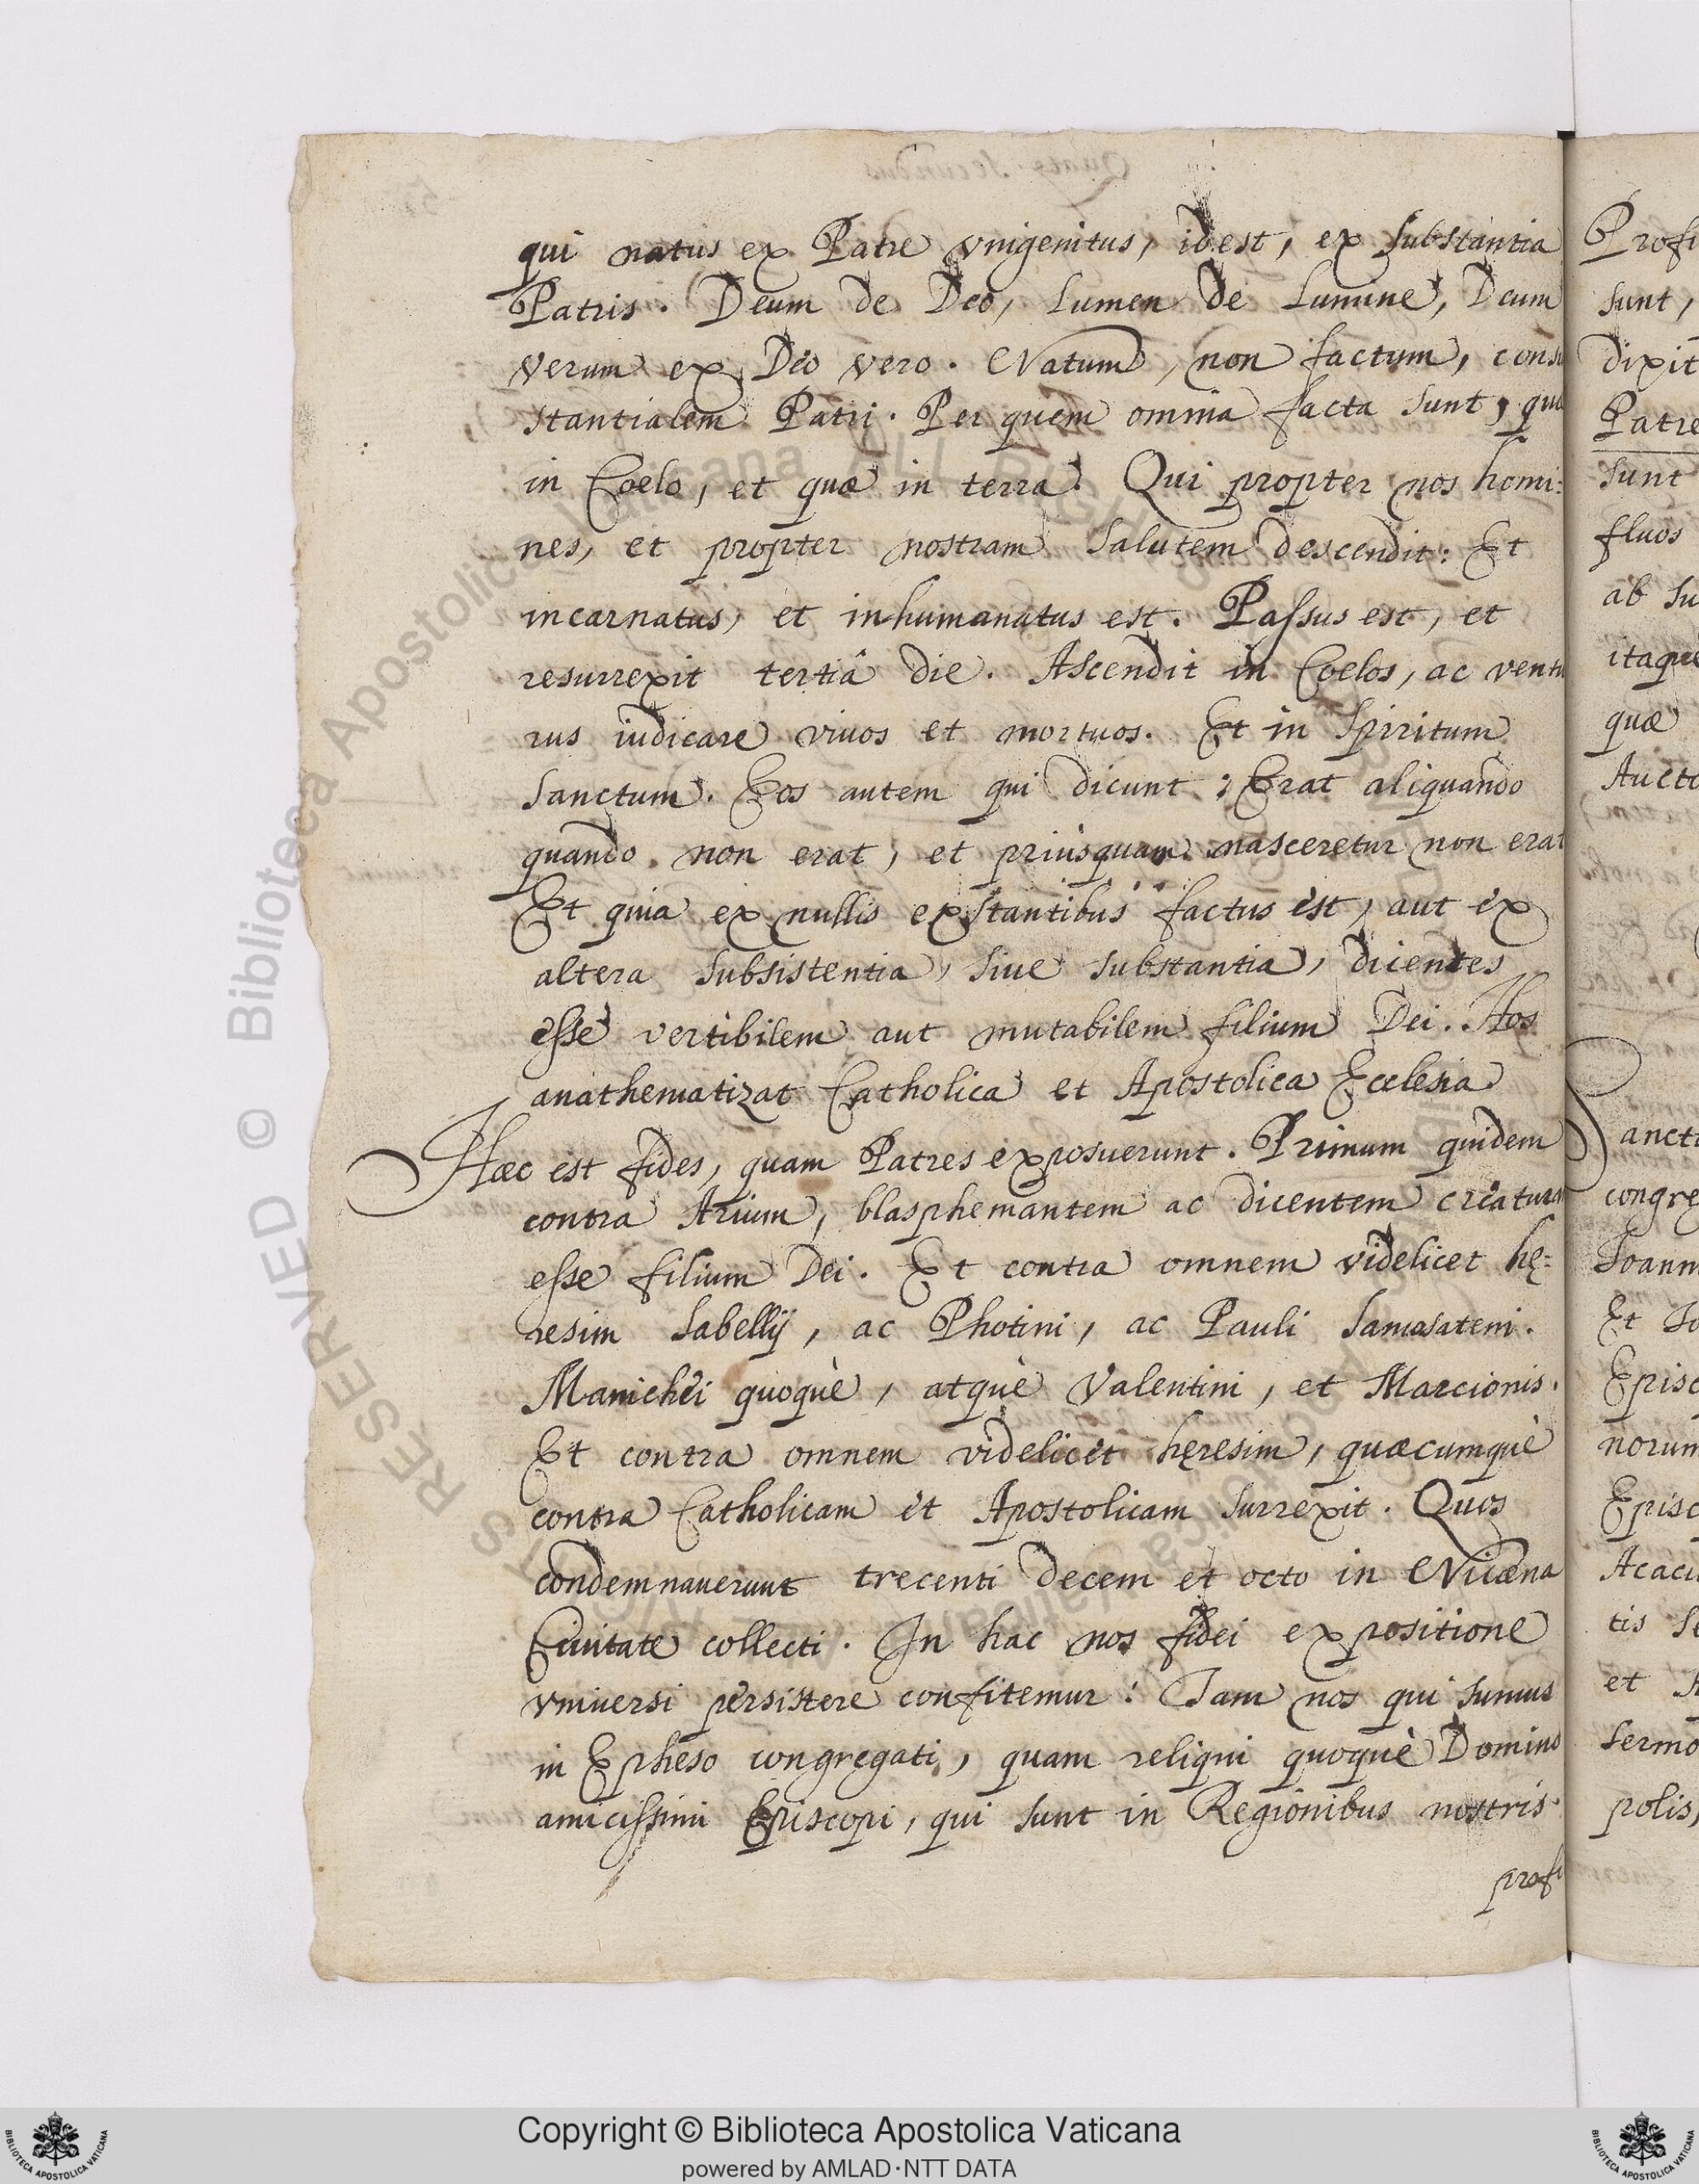 qui natus ex Patre vnigenitus, idest, ex substantia
Patris. Deum de Deo, Lumen de Lumine, Deum
verum ex Deo vero. Natum, non factum, consu
stantialem Patri. Per quem omnia facta sunt, quæ
in Coelo, et quæ in terra. Qui propter nos homi:
nes, et propter nostram salutem descendit: Et
incarnatus, et inhumanatus est. Passus est, et
resurrexit tertiâ die. Ascendit in Coelos, ac ventu
rus iudicare viuos et mortuos. Et in Spiritum
Sanctum. Eos autem qui dicunt: Erat aliquando
quando non erat, et priùsquam nasceretur non erat
Et quia ex nullis exstantibus factus est, aut ex
altera subsistentia, siue substantia, dicentes
esse vertibilem aut mutabilem filium Dei. Hos
anathematizat Catholica et Apostolica Ecclesia
Hæc est fides, quam Patres exposuerunt. Primum quidem
contra Arium, blasphemantem ac dicentem creatura
esse filium Dei. Et contra omnem videlicet hę:
resim Sabellij, ac Photini, ac Pauli Samosateni.
Manichei quoquè, atquè Valentini, et Marcionis.
Et contra omnem videlicet hęresim, quæcumquè
contra Catholicam et Apostolicam surrexit. Quos
condemnauerunt trecenti decem et octo in Nicæna
Ciuitate collecti. In hac nos fidei expositione
vniuersi persistere confitemur: Tam nos qui sumus
in Epheso congregati, quam reliqui quoquè Domino
amicissimi Episcopi, qui sunt in Regionibus nostris
profi
Profi
sunt,
dixit
Patre
sunt
fluos
ab su
itaque
quæ
Aucto
Sancti
congre
Joann
Et Jo
Episc
norum
Episc
Acaci
tis Se
et
sermo
polis,
© Biblioteca Apostolica Vaticana ALL RIGHTS RESERVED
Copyright © Biblioteca Apostolica Vaticana
powered by AMLAD·NTT DATA
BIBLIOTECA APOSTOLICA VATICANA
BIBLIOTECA APOSTOLICA VATICANA